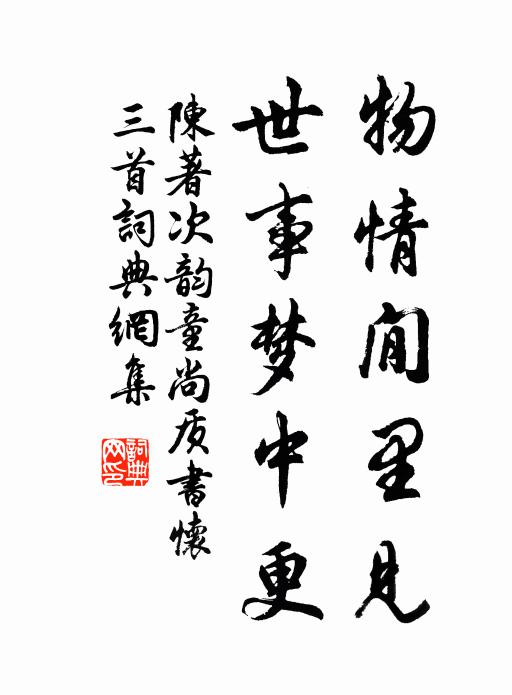 物情閒里見
世事梦中更
陳著次韵童尚质書懷
三首詞典網集
詞典網印